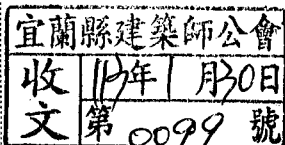 宜蘭縣建築師公會
收文 113年1月30日
第0099號